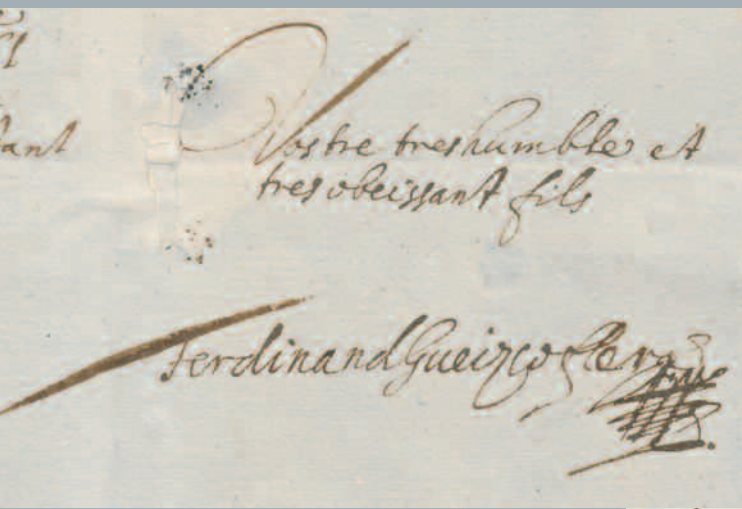 ant
Vostre treshumble et
tres obeissant fils
Ferdinand